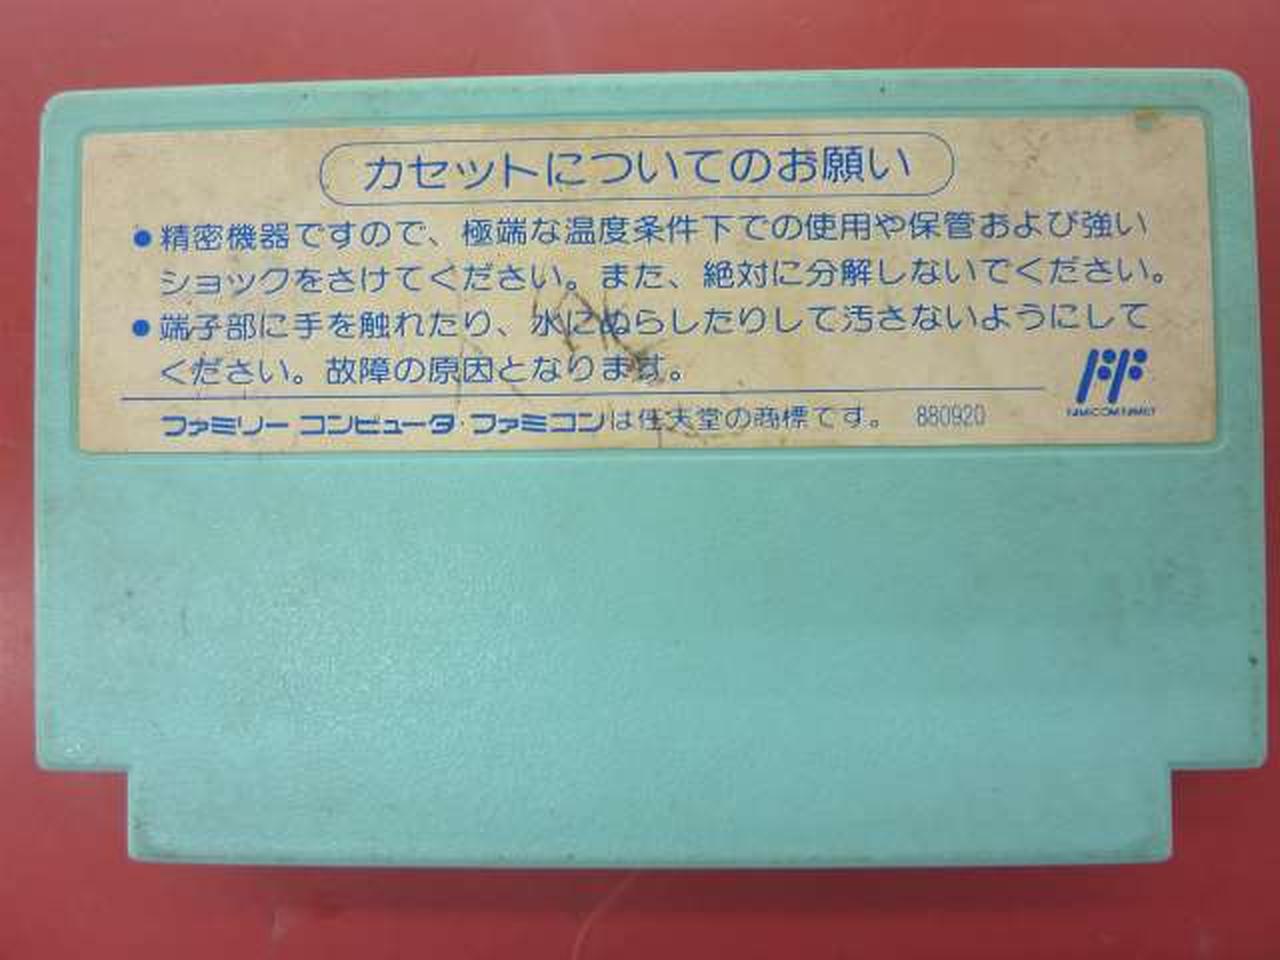 カセットについてのお願い
●精密機器ですので、極端な温度条件下での使用や保管および強い
ショックをさけてください。また、絶対に分解しないでください。
●端子部に手を触れたり、水にぬらしたりして汚さないようにして
ください。故障の原因となります。
ファミリー コンピュータ・ファミコンは任天堂の商標です。 880920
FAMICOM FAMILY